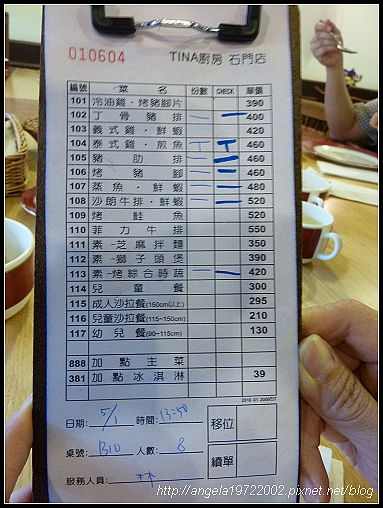 010604
TINA廚房 石門店
編號 菜名 份數 CHECK 單價
101 冷油雞·烤豬腳片 390
102 丁骨豬排 一 400
103 義式雞·鮮蝦 420
104 泰式雞·煎魚 丅 丅 460
105 豬肋排 一 460
106 烤豬腳 一 460
107 蒸魚·鮮蝦 一 480
108 沙朗牛排·鮮蝦 一 520
109 烤鮭魚 520
110 菲力牛排 550
111 素-芝麻拌麵 350
112 素-獅子頭煲 390
113 素-烤綜合時蔬 一 420
114 兒童餐 300
115 成人沙拉餐(150cm以上) 295
116 兒童沙拉餐(115~150cm) 210
117 幼兒餐(90~115cm) 130
888 加點主菜
381 加點冰淇淋 39
日期: 5/1 時間: 13:50
移位
桌號: B10 人數: 8
續單
服務人員: 林
http://angela19722002.pixnet.net/blog